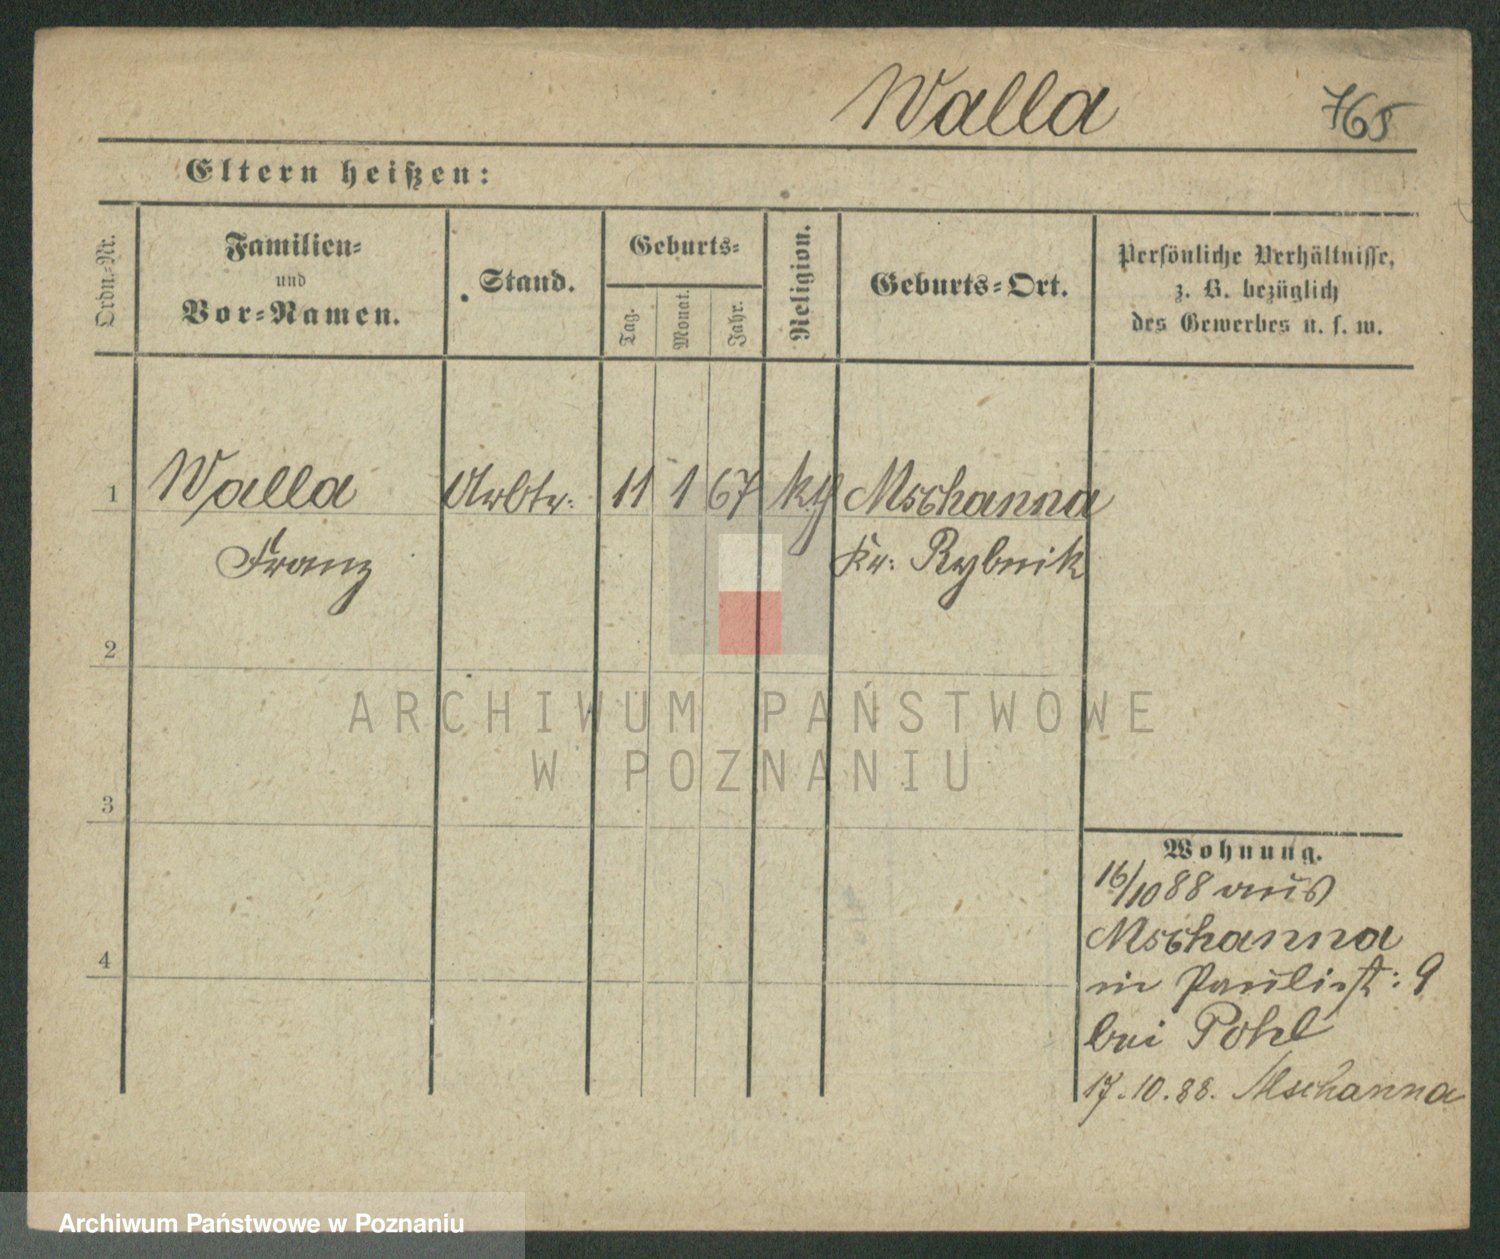 Walla 765
Eltern heißen:
Ordn.-Nr.
Familien-
und
Vor-Namen.
Stand.
Geburts-
Tag.
Monat.
Jahr.
Religion.
Geburts-Ort.
Persönliche Verhältnisse,
z. B. bezüglich
des Gewerbes u. s. w.
1 Walla Arbtr. 11 1 67 k Mschanna
Franz Kr: Rybnik
2
3
4
Wohnung.
16/10 88 aus
Mschanna
in Paulist: 9
bei Pohl
17.10.88. Mschanna
ARCHIWUM PAŃSTWOWE
W POZNANIU
Archiwum Państwowe w Poznaniu